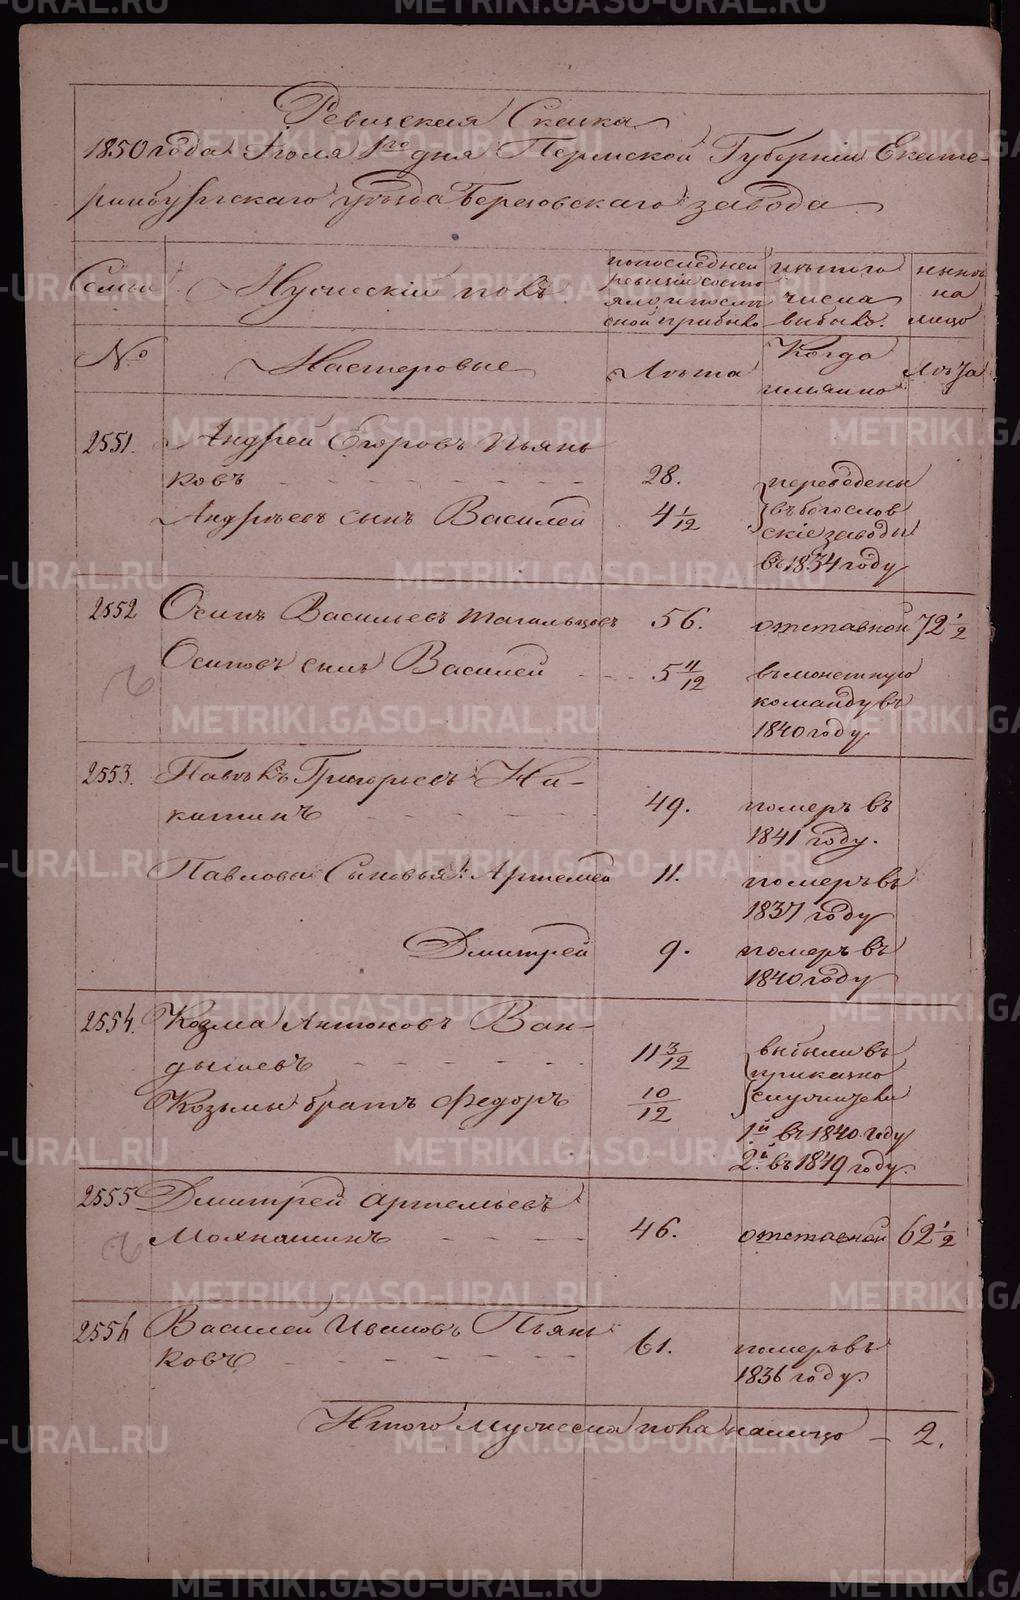 Ревизская Сказка
1850 года Iюля 1го дня Пермской Губернiи Екате-
ринбургскаго уѣзда Березовскаго завода
Семьи
Мужескiй полъ
по последней
ревизiи состо
яло и послѣ
оной прибыло
изъ того
числа
выбыло.
нынѣ
на
лицо
№
Мастеровые
Лѣта
Когда
имянно
Лѣта
2551. Андрей Егоровъ Пьянь
ковъ 28. переведены
Андреевъ сынъ Василей 4 1/12 въ богослов
скiе заводы
въ 1834 году
2552 Осипъ Васильевъ Тагильцовъ 56. отставной 72 1/2
Осиповъ сынъ Василей 5 11/12 въ монетную
команду въ
1840 году
2553. Павелъ Григорьевъ Ни-
китинъ 49. померъ въ
1841 году.
Павловы Сыновья: Артемей 11. померъ въ
1837 году
Дмитрей 9. померъ въ
1840 году
2554. Козма Антоновъ Ван-
дышевъ 11 3/12 выбыли въ
приказно
Козьмы братъ Федоръ 10/12 служители
1й въ 1840 году
2й въ 1849 году.
2555 Дмитрей Артемьевъ
Молянинъ 46. отставной 62 1/2
2556 Василей Ивановъ Пьянь
ковъ 61. померъ въ
1836 году.
Итого мужеска пола налицо — 2.
METRIKI.GASO-URAL.RU